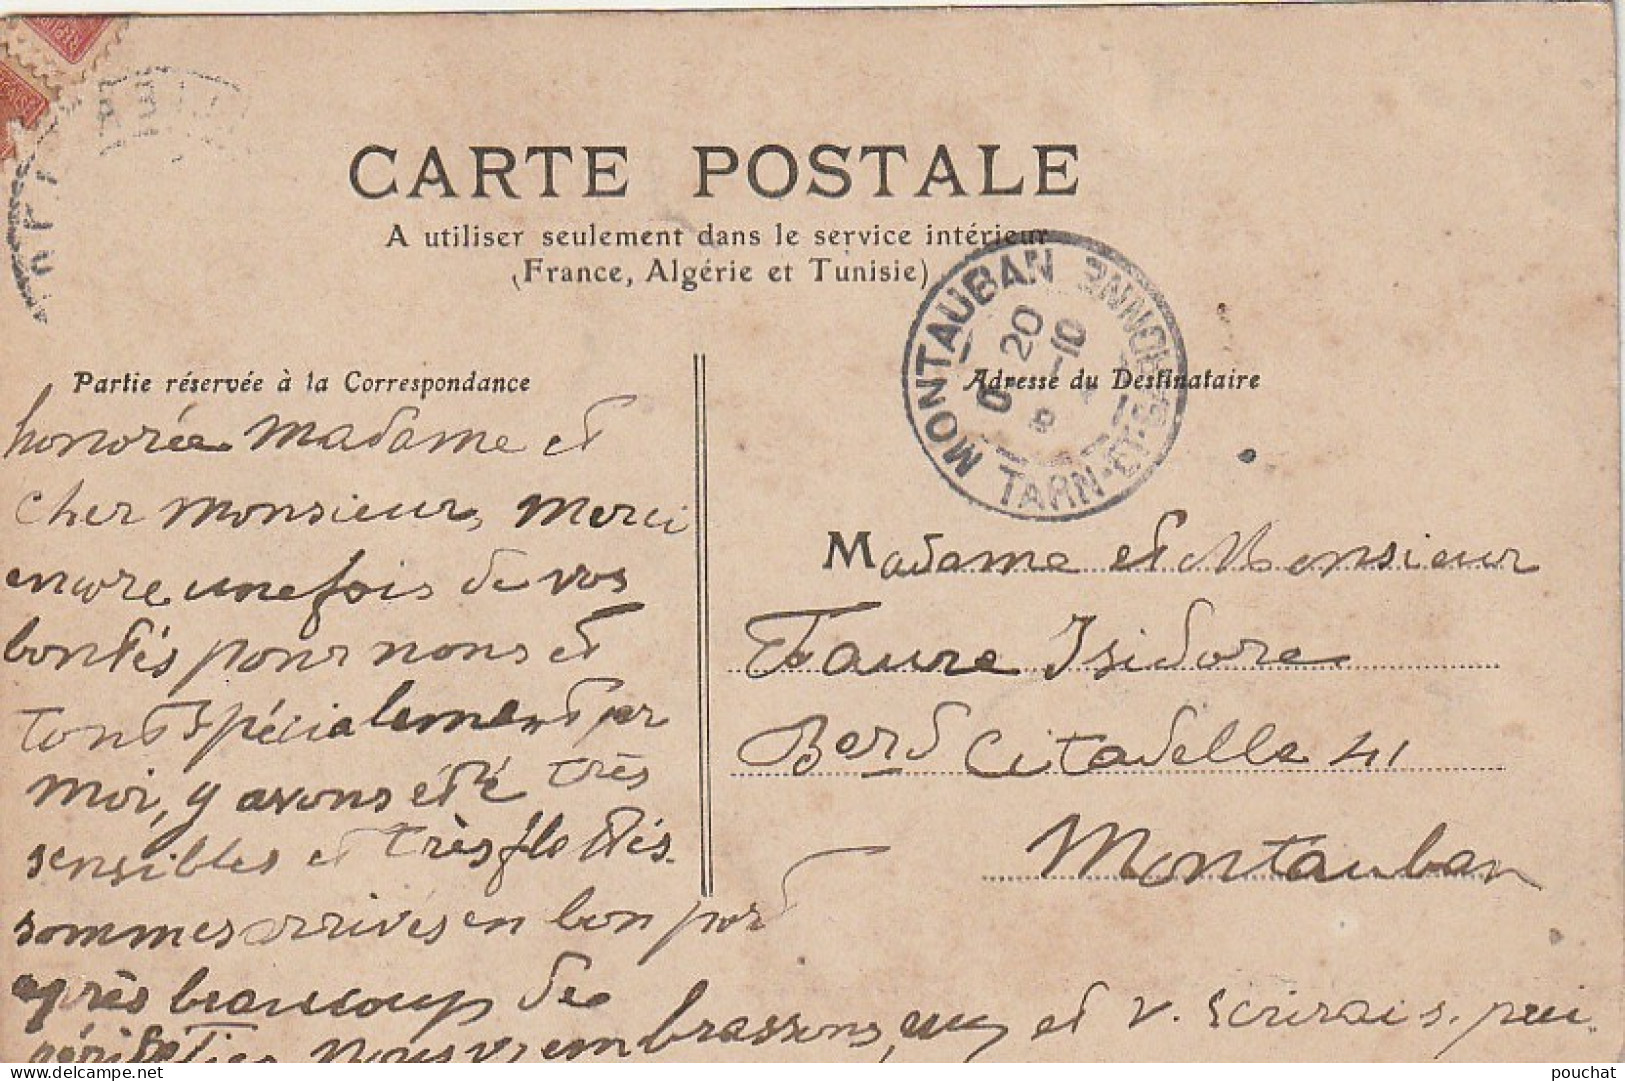 CARTE POSTALE
A utiliser seulement dans le service intérieur
(France, Algérie et Tunisie)
MONTAUBAN TARN-ET-GARONNE
20
-10
Partie réservée à la Correspondance
honorée Madame et
cher Monsieur, Merci
encore une fois de vos
bontés pour nous et
tout spécialement par
moi, y avons été très
sensibles et très flattés.
sommes arrivés en bon port
après beaucoup de
péripéties. Nous v. embrassons, et v. Scrirais.
Adresse du Destinataire
Madame et Monsieur
Faure Isidore
Bord Citadelle 41
Montauban
pouchat